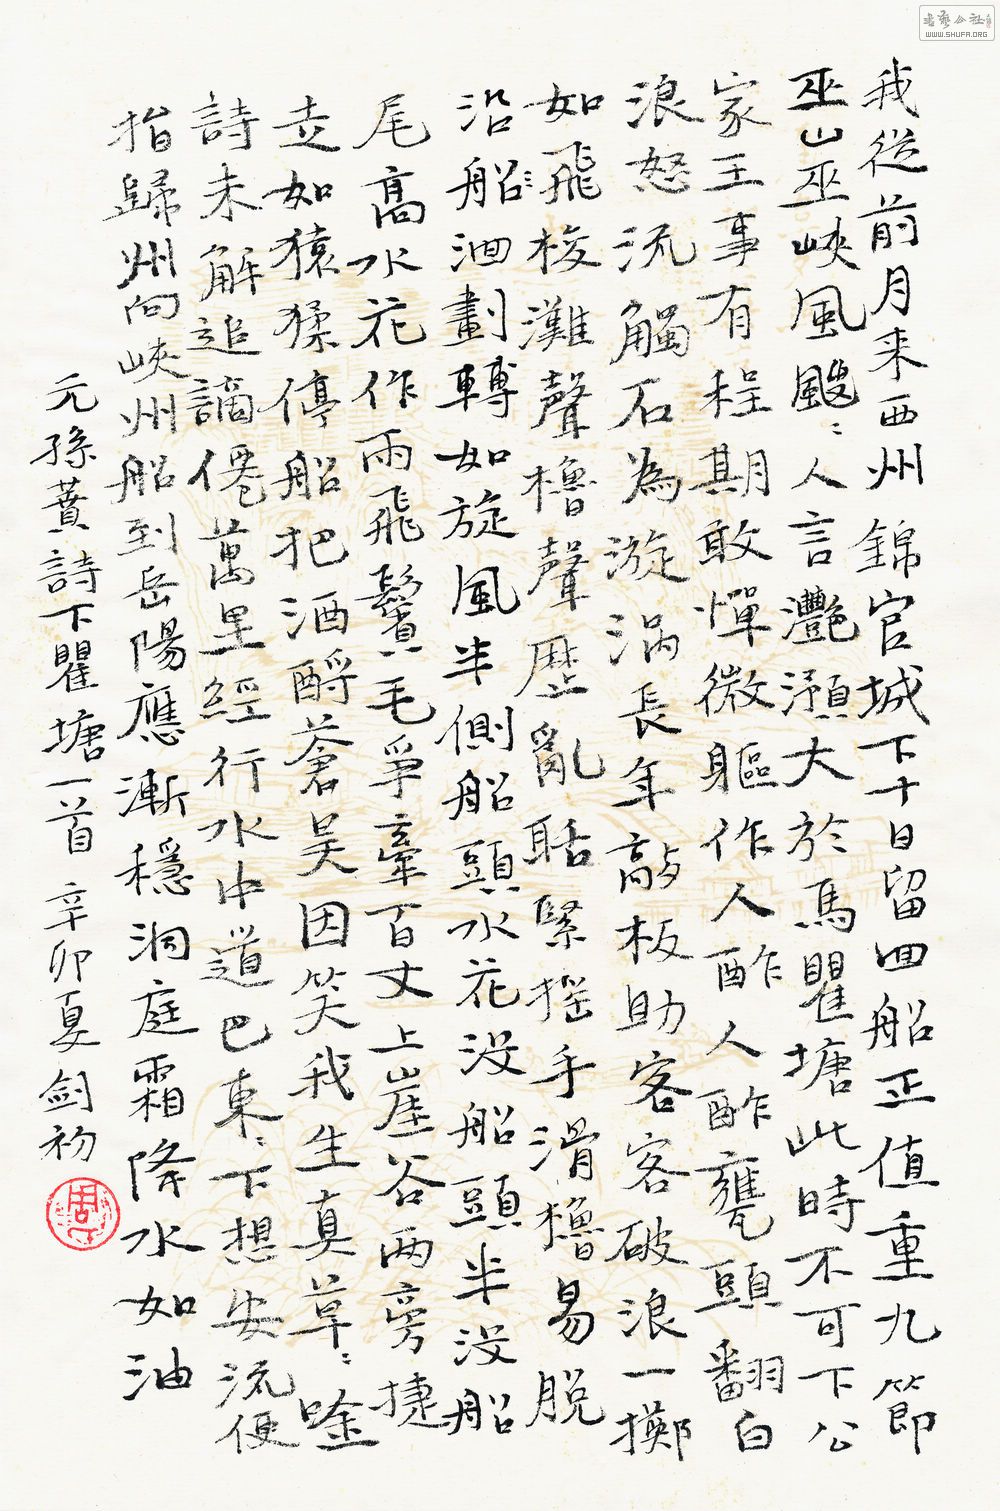 我從前月来西州錦官城下十日留回船正值重九節
巫山巫峽風颼〻人言灔澦大於馬瞿塘此時不可下公
家王事有程期敢憚微軀作人酢人酢甕頭翻白
浪怒流觸石為漩渦長年敲板助客客破浪一擲
如飛梭灘聲櫓聲歷亂聒緊摇手滑櫓易脱
沿船洄劃轉如旋風半側船頭水花没船頭半没船
尾高水花作雨飛鬢毛爭牽百丈上崖谷两旁捷
走如猿猱停船把酒酹蒼昊因笑我生真草〻唫
詩未解追謫僊萬里經行水中道巴東〻下想安流便
指歸州向峽州船到岳陽應漸穩洞庭霜降水如油
元孫蕡詩下瞿塘一首 辛卯夏劍初
WWW.SHUFA.ORG